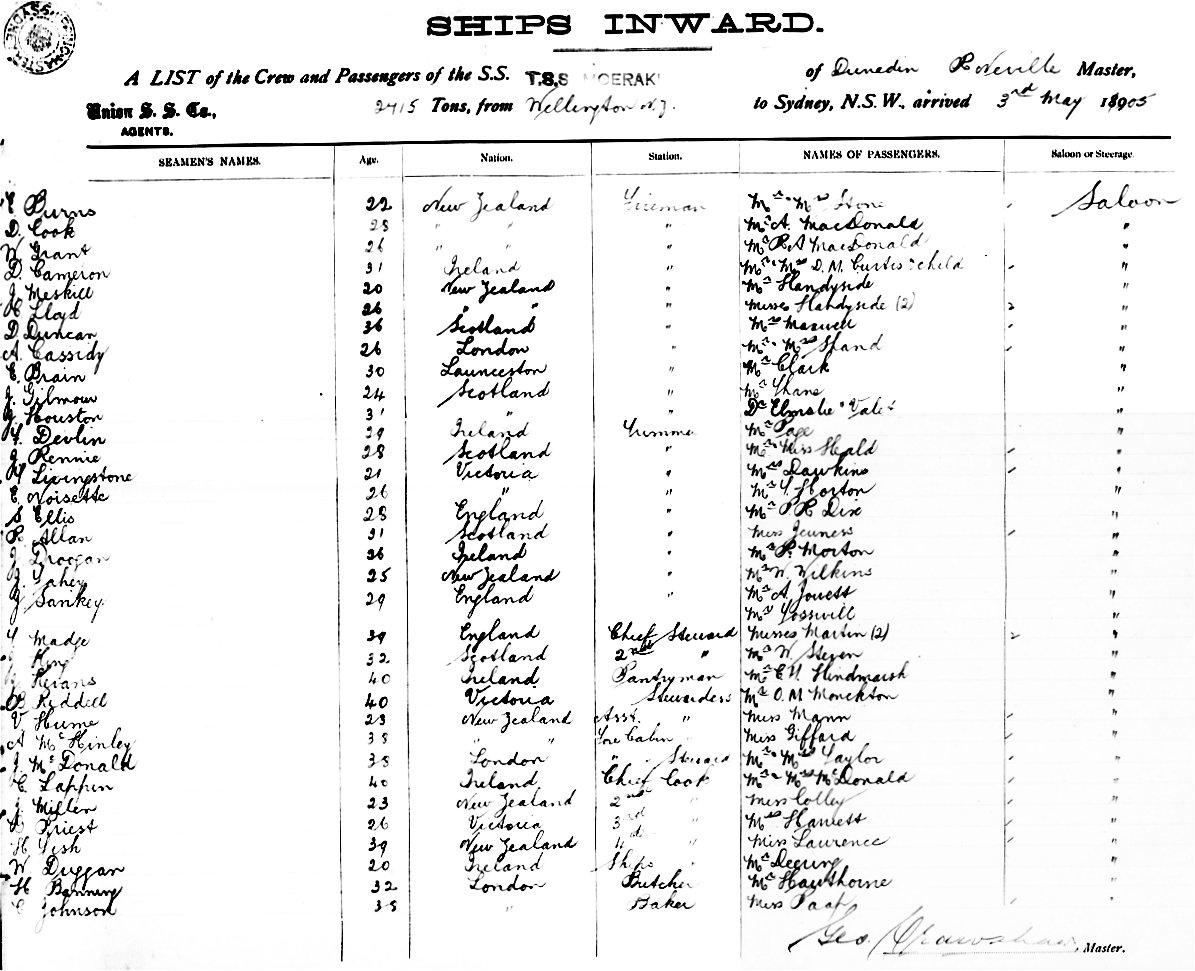 SHIPS INWARD.
A LIST of the Crew and Passengers of the S.S. T.S.S MOERAKI of Dunedin R Neville Master,
Union S. S. Co., 2415 Tons, from Wellington N.Z. to Sydney, N.S.W., arrived 3rd May 1905
AGENTS.
SEAMEN'S NAMES. Age. Nation. Station. NAMES OF PASSENGERS. Saloon or Steerage
Burns 22 New Zealand Fireman Mr " Mrs Saloon
D. Cook 28 " " " Mr A. MacDonald "
W. Grant 26 " " " Mr R A MacDonald "
D. Cameron 31 Ireland " Mr " Mrs D. M. Curtis " child "
J. Meskill 20 New Zealand " Mrs Handyside "
H Lloyd 26 " " " Misses Handyside (2) 2 "
D Duncan 36 Scotland " Mrs Maxwell "
A. Cassidy 26 London " Mr " Mrs Shand "
E. Brain 30 Launceston " Mr Clark "
J. Gilmour 24 Scotland " Mr "
Houston 31 " " Dr Elmslie " Valet "
Devlin 29 Ireland Trimmer Mr Page "
J. Rennie 28 Scotland " Mr " Miss Heald "
Livingstone 21 Victoria " Mrs Dawkins "
E. Noisette 26 " " Mr Horton "
S Ellis 28 England " Mr P R Dix "
R. Allan 31 Scotland " Miss "
J. Droogan 26 Ireland " Mr P. Morton "
J. Fahey 25 New Zealand " Mr W. Wilkins "
J Sankey 29 England " Mr A. Jowett "
Mr "
Madge 39 England Chief Steward Misses Martin (2) 2 "
King 32 Scotland 2nd " Mr W Steven "
Kevans 40 Ireland Pantryman Mr E H Hindmarsh "
Riddell 40 Victoria Stewardess Mr O. M. Monckton "
V Hume 23 New Zealand Asst. " Miss Mann "
A McKinley 38 " " Fore Cabin " Miss Giffard "
J McDonald 38 London " Steward Mr " Mrs Taylor "
C Lappin 40 Ireland Chief Cook Mr " Mrs McDonald "
J. Miller 23 New Zealand 2nd " Miss Colley "
Priest 26 Victoria 3rd " Mrs "
H Fish 39 New Zealand 4th " Miss Laurence "
W Duggan 20 Ireland Ships " Mr "
H Banning 32 London Butcher Mr Hawthorne "
C Johnson 38 " Baker Miss "
Geo. Crawshaw, Master.